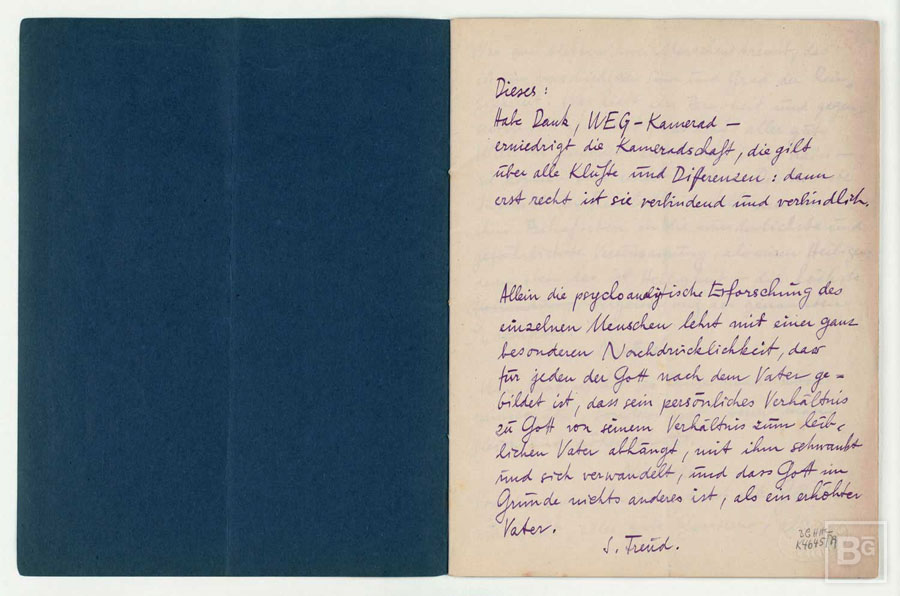 Dieses:
Habe Dank, WEG-Kamerad –
erniedrigt die Kameradschaft, die gilt
über alle Klüfte und Diferenzen: dann
erst recht ist sie verbindend und verbindlich.
Allein die psychoanalytische Erforschung des
einzelnen Menschen lehrt mit einer ganz
besonderen Nachdrücklichkeit, dass
für jeden der Gott nach dem Vater ge=
bildet ist, dass sein persönliches Verhältnis
zu Gott von seinem Verhältnis zum leib-
lichen Vater abhängt, mit ihm schwankt
und sich verwandelt, und dass Gott im
Grunde nichts anderes ist, als ein erhöhter
Vater.
S. Freud.
BG